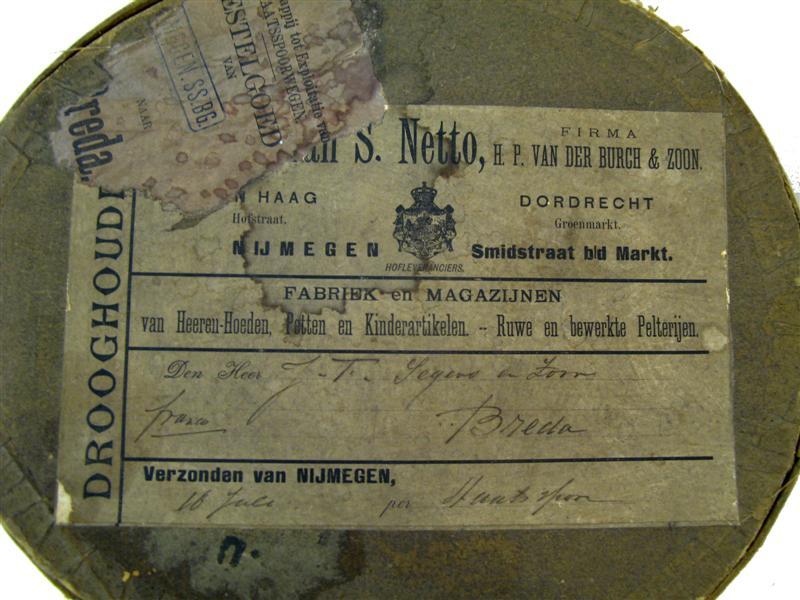 appij tot Exploitatie van
AATSSPOORWEGEN
ESTELGOED
VAN
NIJMEGEN.SS.BG.
NAAR
Breda
DROOGHOUDE
van S. Netto,
FIRMA
H. P. VAN DER BURCH & ZOON.
N HAAG
Hofstraat.
DORDRECHT
Groenmarkt.
NIJMEGEN
HOFLEVERANCIERS.
Smidstraat b/d Markt.
FABRIEK en MAGAZIJNEN
van Heeren-Hoeden, Petten en Kinderartikelen. - Ruwe en bewerkte Pelterijen.
Den Heer J. F. Segers en Zoon
franco Breda
Verzonden van NIJMEGEN,
16 Juli per Staatsspoor